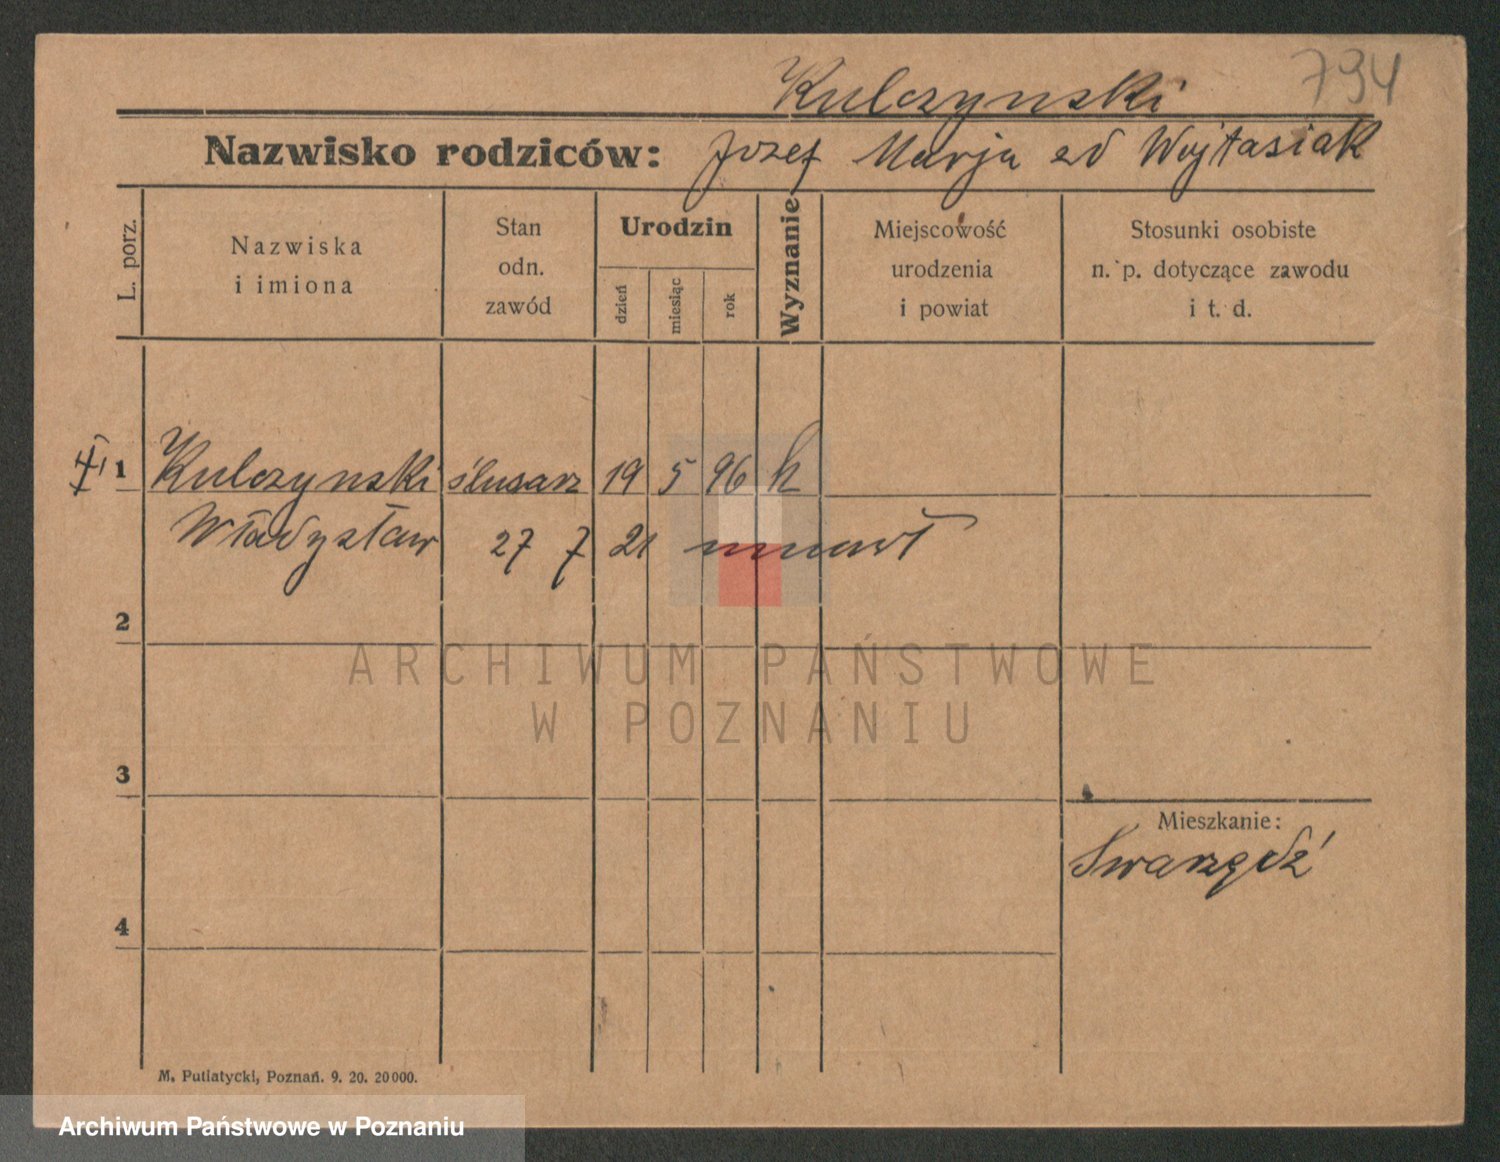 794
Kulczynski
Nazwisko rodziców: Jozef Marja zd Wojtasiak
L. porz.
Nazwiska
i imiona
Stan
odn.
zawód
Urodzin
dzień
miesiąc
rok
Wyznanie
Miejscowość
urodzenia
i powiat
Stosunki osobiste
n. p. dotyczące zawodu
i t. d.
1 Kulczynski ślusarz 19 5 96 k
Władysław 27 7 21 umarł
2
ARCHIWUM PAŃSTWOWE
W POZNANIU
3
Mieszkanie:
Swarzędź
4
M. Putiatycki, Poznań. 9. 20. 20000.
Archiwum Państwowe w Poznaniu